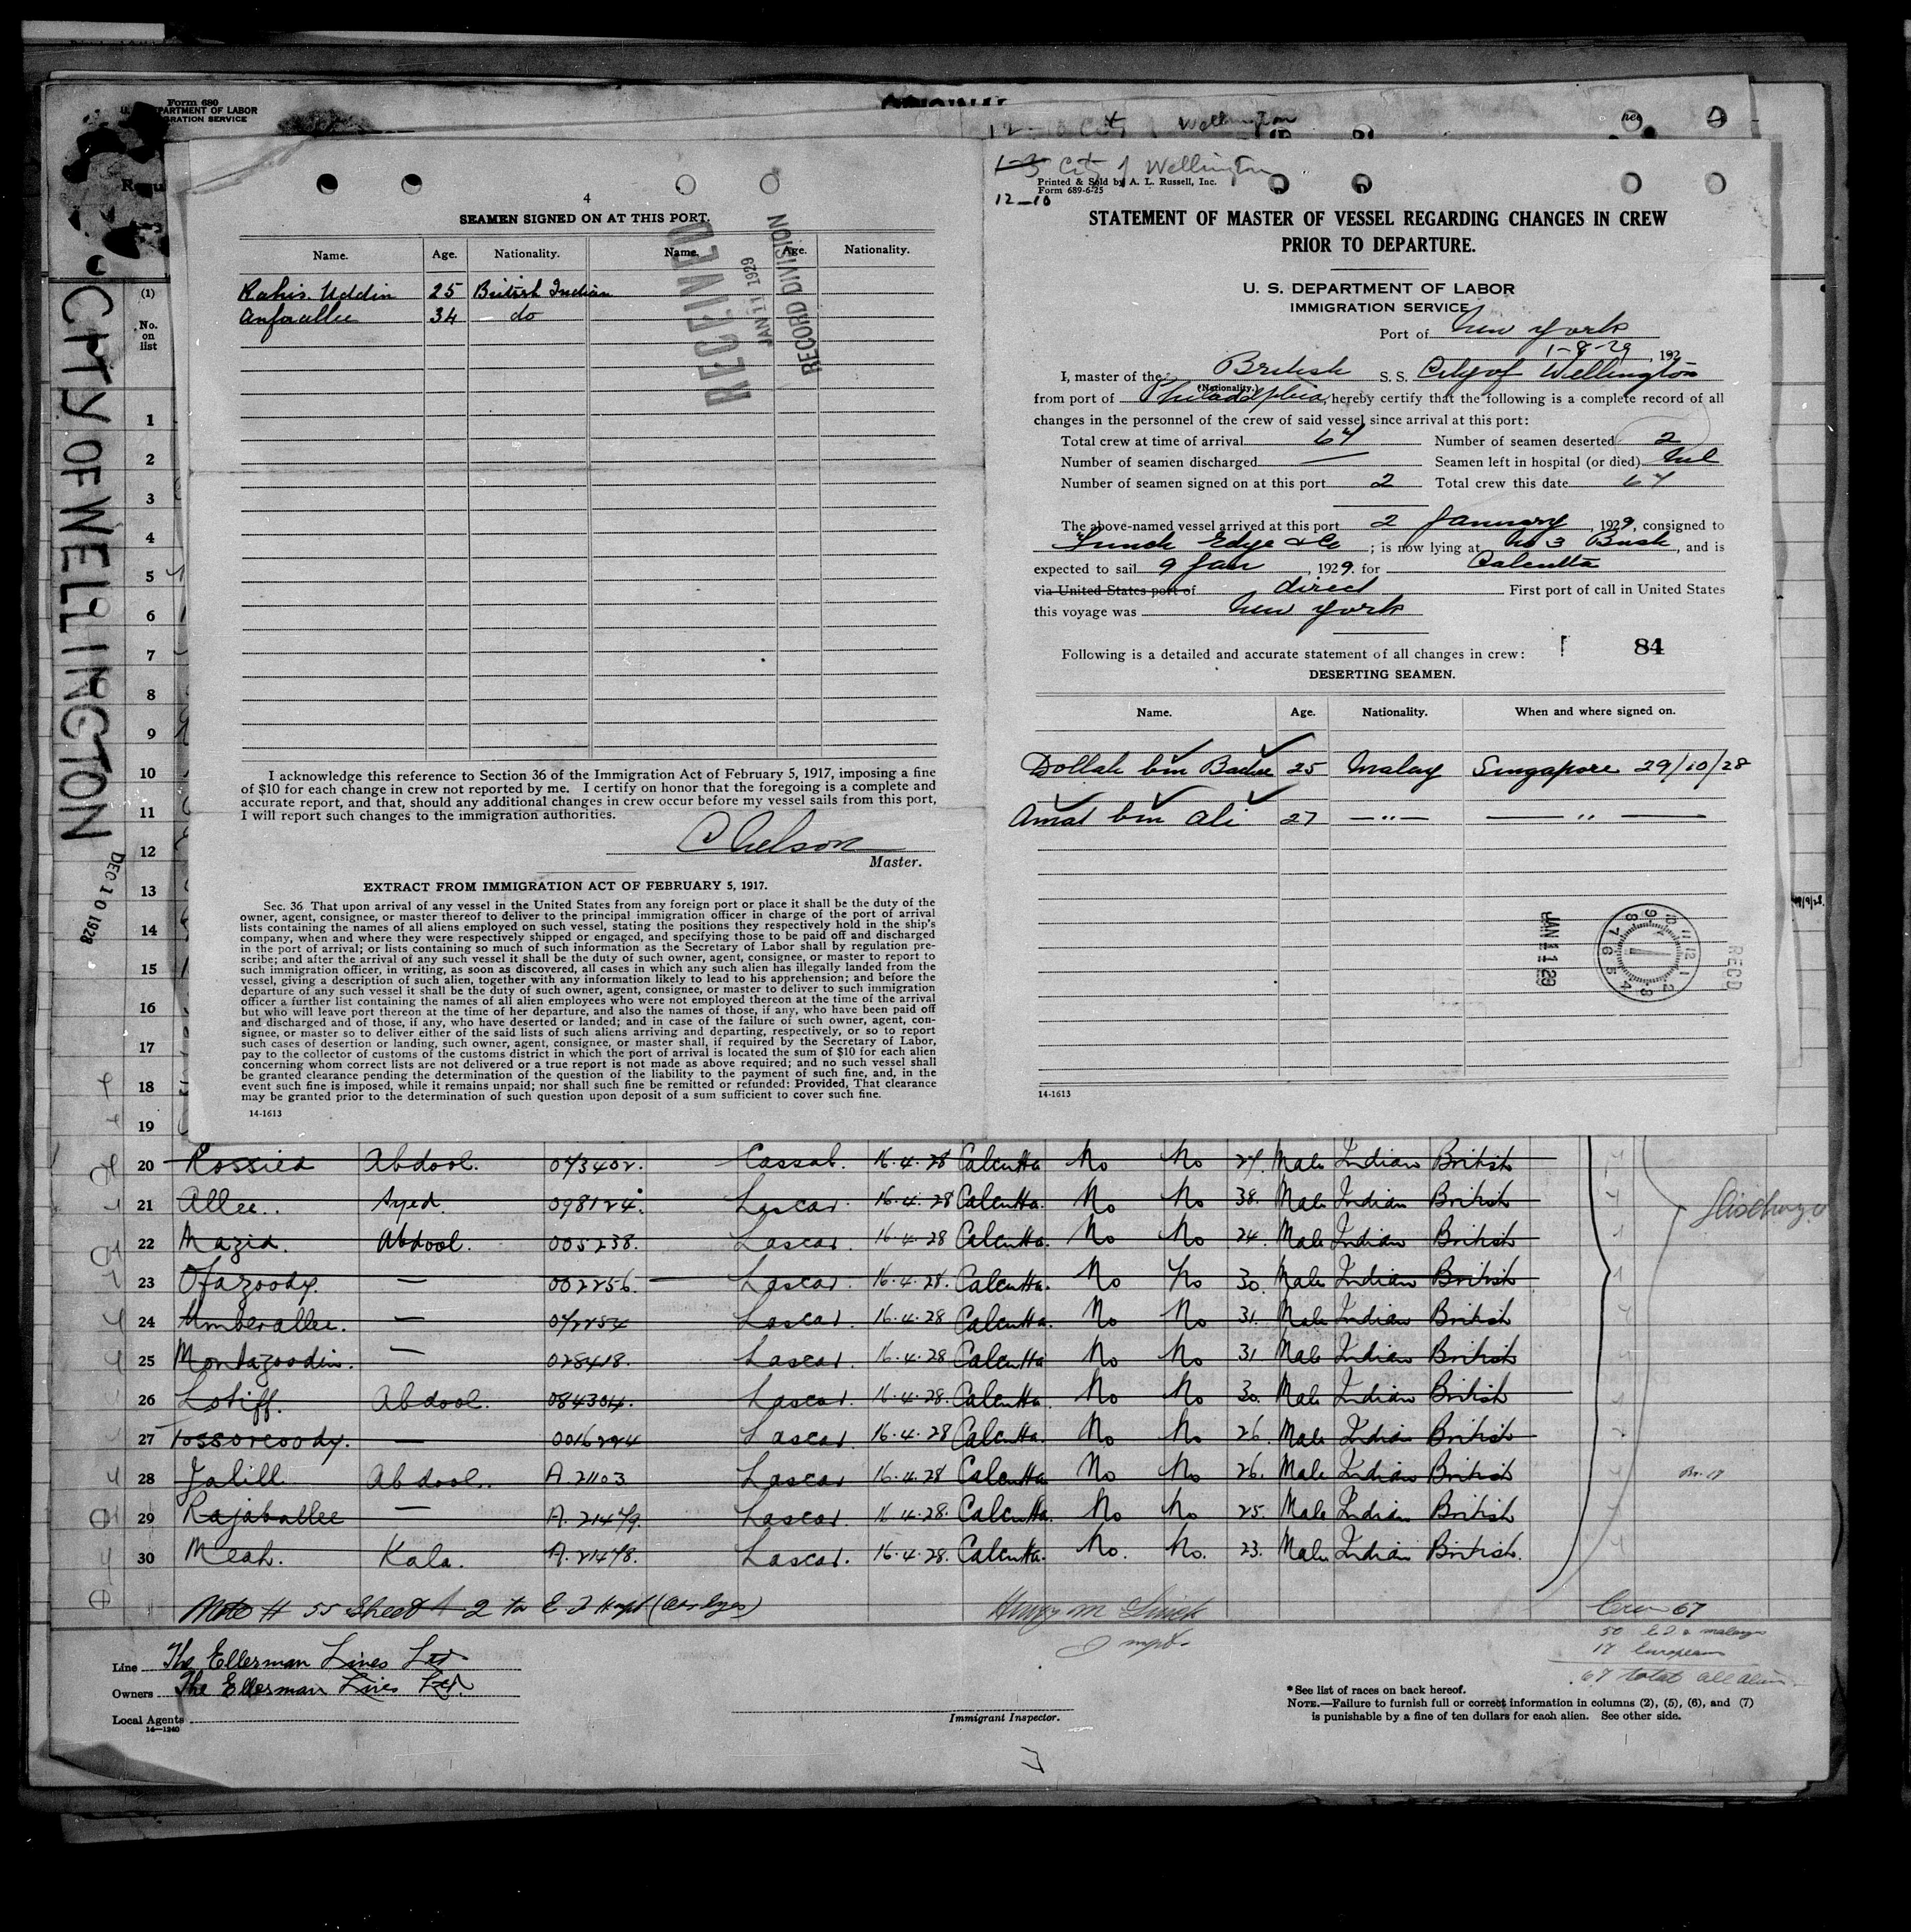 Form 680
U. S. DEPARTMENT OF LABOR
IMMIGRATION SERVICE
12-10 City of Wellington
CITY OF WELLINGTON
DEC 10 1928
(1)
No.
on
list
1
2
3
4
5
6
7
8
9
10
11
12
13
14
15
16
17
18
19
4
SEAMEN SIGNED ON AT THIS PORT.
Name. Age. Nationality. Name. Age. Nationality.
Rahis Uddin 25 British Indian
Anfarullee 34 do
RECEIVED
JAN 11 1929
RECORD DIVISION
I acknowledge this reference to Section 36 of the Immigration Act of February 5, 1917, imposing a fine
of $10 for each change in crew not reported by me. I certify on honor that the foregoing is a complete and
accurate report, and that, should any additional changes in crew occur before my vessel sails from this port,
I will report such changes to the immigration authorities.
C Nelson
Master.
EXTRACT FROM IMMIGRATION ACT OF FEBRUARY 5, 1917.
Sec. 36 That upon arrival of any vessel in the United States from any foreign port or place it shall be the duty of the
owner, agent, consignee, or master thereof to deliver to the principal immigration officer in charge of the port of arrival
lists containing the names of all aliens employed on such vessel, stating the positions they respectively hold in the ship's
company, when and where they were respectively shipped or engaged, and specifying those to be paid off and discharged
in the port of arrival; or lists containing so much of such information as the Secretary of Labor shall by regulation pre-
scribe; and after the arrival of any such vessel it shall be the duty of such owner, agent, consignee, or master to report to
such immigration officer, in writing, as soon as discovered, all cases in which any such alien has illegally landed from the
vessel, giving a description of such alien, together with any information likely to lead to his apprehension; and before the
departure of any such vessel it shall be the duty of such owner, agent, consignee, or master to deliver to such immigration
officer a further list containing the names of all alien employees who were not employed thereon at the time of the arrival
but who will leave port thereon at the time of her departure, and also the names of those, if any, who have been paid off
and discharged and of those, if any, who have deserted or landed; and in case of the failure of such owner, agent, con-
signee, or master so to deliver either of the said lists of such aliens arriving and departing, respectively, or so to report
such cases of desertion or landing, such owner, agent, consignee, or master shall, if required by the Secretary of Labor,
pay to the collector of customs of the customs district in which the port of arrival is located the sum of $10 for each alien
concerning whom correct lists are not delivered or a true report is not made as above required; and no such vessel shall
be granted clearance pending the determination of the question of the liability to the payment of such fine, and, in the
event such fine is imposed, while it remains unpaid; nor shall such fine be remitted or refunded: Provided, That clearance
may be granted prior to the determination of such question upon deposit of a sum sufficient to cover such fine.
14-1613
1-3 City of Wellington
Printed & Sold by A. L. Russell, Inc.
Form 689-6-25
12-10
STATEMENT OF MASTER OF VESSEL REGARDING CHANGES IN CREW
PRIOR TO DEPARTURE.
U. S. DEPARTMENT OF LABOR
IMMIGRATION SERVICE
Port of New York
1-8-29, 192
I, master of the British S. S. City of Wellington
(Nationality.)
from port of Philadelphia, hereby certify that the following is a complete record of all
changes in the personnel of the crew of said vessel since arrival at this port:
Total crew at time of arrival 67 Number of seamen deserted 2
Number of seamen discharged — Seamen left in hospital (or died) Nil
Number of seamen signed on at this port 2 Total crew this date 67
The above-named vessel arrived at this port 2 January, 1929, consigned to
Funch Edye & Co; is now lying at No 3 Bush, and is
expected to sail 9 Jan, 1929. for Calcutta
via United States port of direct First port of call in United States
this voyage was New York
Following is a detailed and accurate statement of all changes in crew: 84
DESERTING SEAMEN.
Name. Age. Nationality. When and where signed on.
Dollah bin 25 Malay Singapore 29/10/28
Amat bin Ali 27 —"— — " —
JAN 11 29
REC'D
14-1613
20 Rossied Abdool. 073402. Cassab. 16.4.28 Calcutta No No 27. Male Indian British
21 Allee. Ayed. 098124. Lascar. 16.4.28 Calcutta. No No 38. Male Indian British
22 Mazid. Abdool. 005238. Lascar. 16.4.28 Calcutta. No No 24. Male Indian British
23 Ofazoody. — 002256. Lascar. 16.4.28. Calcutta. No No 30. Male Indian British
24 Umberallee. — 072254 Lascar. 16.4.28 Calcutta. No No 31. Male Indian British
25 Montazoodin. — 028418. Lascar. 16.4.28 Calcutta No No 31 Male Indian British
26 Lotiff. Abdool. 084304. Lascar. 16.4.28. Calcutta. No No 30. Male Indian British
27 Tossorcoody. — 0016294 Lascar. 16.4.28 Calcutta. No No 26. Male Indian British
28 Jalill Abdool. A.21103 Lascar 16.4.28 Calcutta No No 26. Male Indian British
29 Rajaballee — A.21479. Lascar. 16.4.28. Calcutta. No No 25. Male Indian British
30 Meah. Kala. A.21478. Lascar. 16.4.28. Calcutta. No. No. 23. Male Indian British.
Discharged
Note # 55 Sheet 2 to E I Hospt
Crew 67
17 European
67 total all alien
Line The Ellerman Lines Ltd
Owners The Ellerman Lines Ltd.
Local Agents
14-1240
Immigrant Inspector.
*See list of races on back hereof.
NOTE.—Failure to furnish full or correct information in columns (2), (5), (6), and (7)
is punishable by a fine of ten dollars for each alien. See other side.